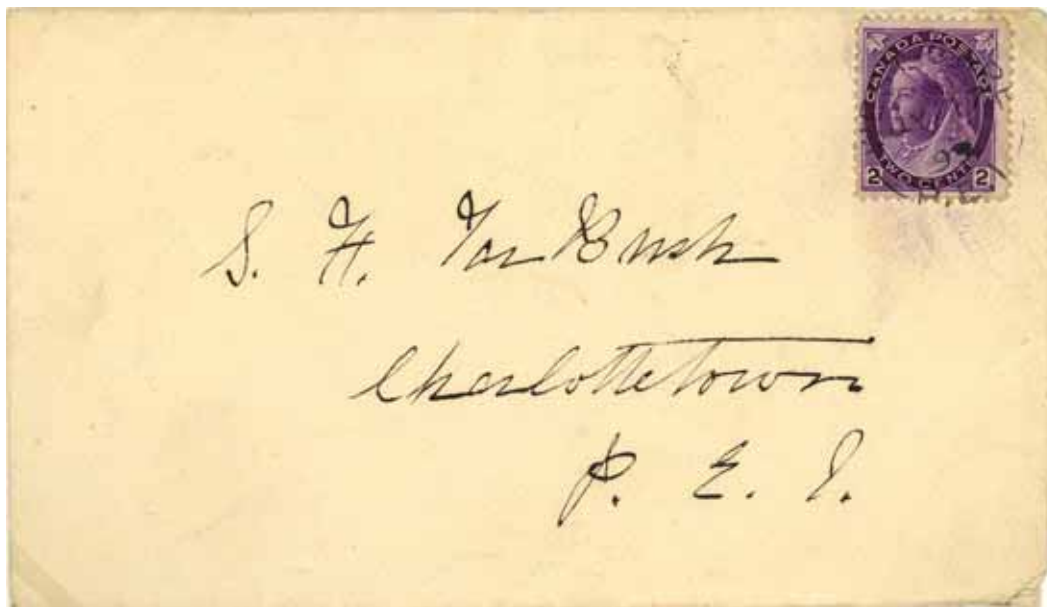 CANADA POSTAGE
2 TWO CENTS 2
S. H.
Charlottetown
P. E. I.